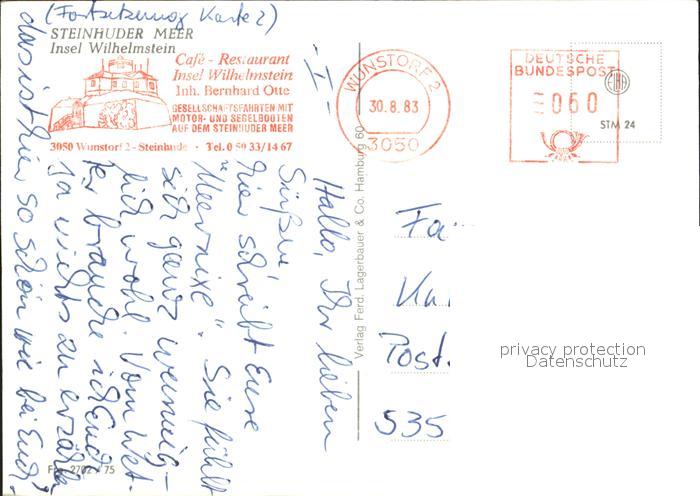 (Fortsetzung Karte 2)
STEINHUDER MEER
Insel Wilhelmstein
Café - Restaurant
Insel Wilhelmstein
Inh. Bernhard Otte
GESELLSCHAFTSFAHRTEN MIT
MOTOR- UND SEGELBOOTEN
AUF DEM STEINHUDER MEER
3050 Wunstorf 2 - Steinhude - Tel. 0 50 33/14 67
WUNSTORF 2
30.8.83
3050
DEUTSCHE
BUNDESPOST
060
STM 24
- I -
Hallo, Ihr lieben
Süßen!
hier schreibt Eure
"Meernixe". Sie fühlt
sich ganz wennig-
lich wohl. Vom Wet-
ter brauche ich Euch
ja nichts zu erzählen
das ist hier so schön wie bei Euch.
Verlag Ferd. Lagerbauer & Co. Hamburg 60
Fa
Post.
535
privacy protection
Datenschutz
2702 / 75